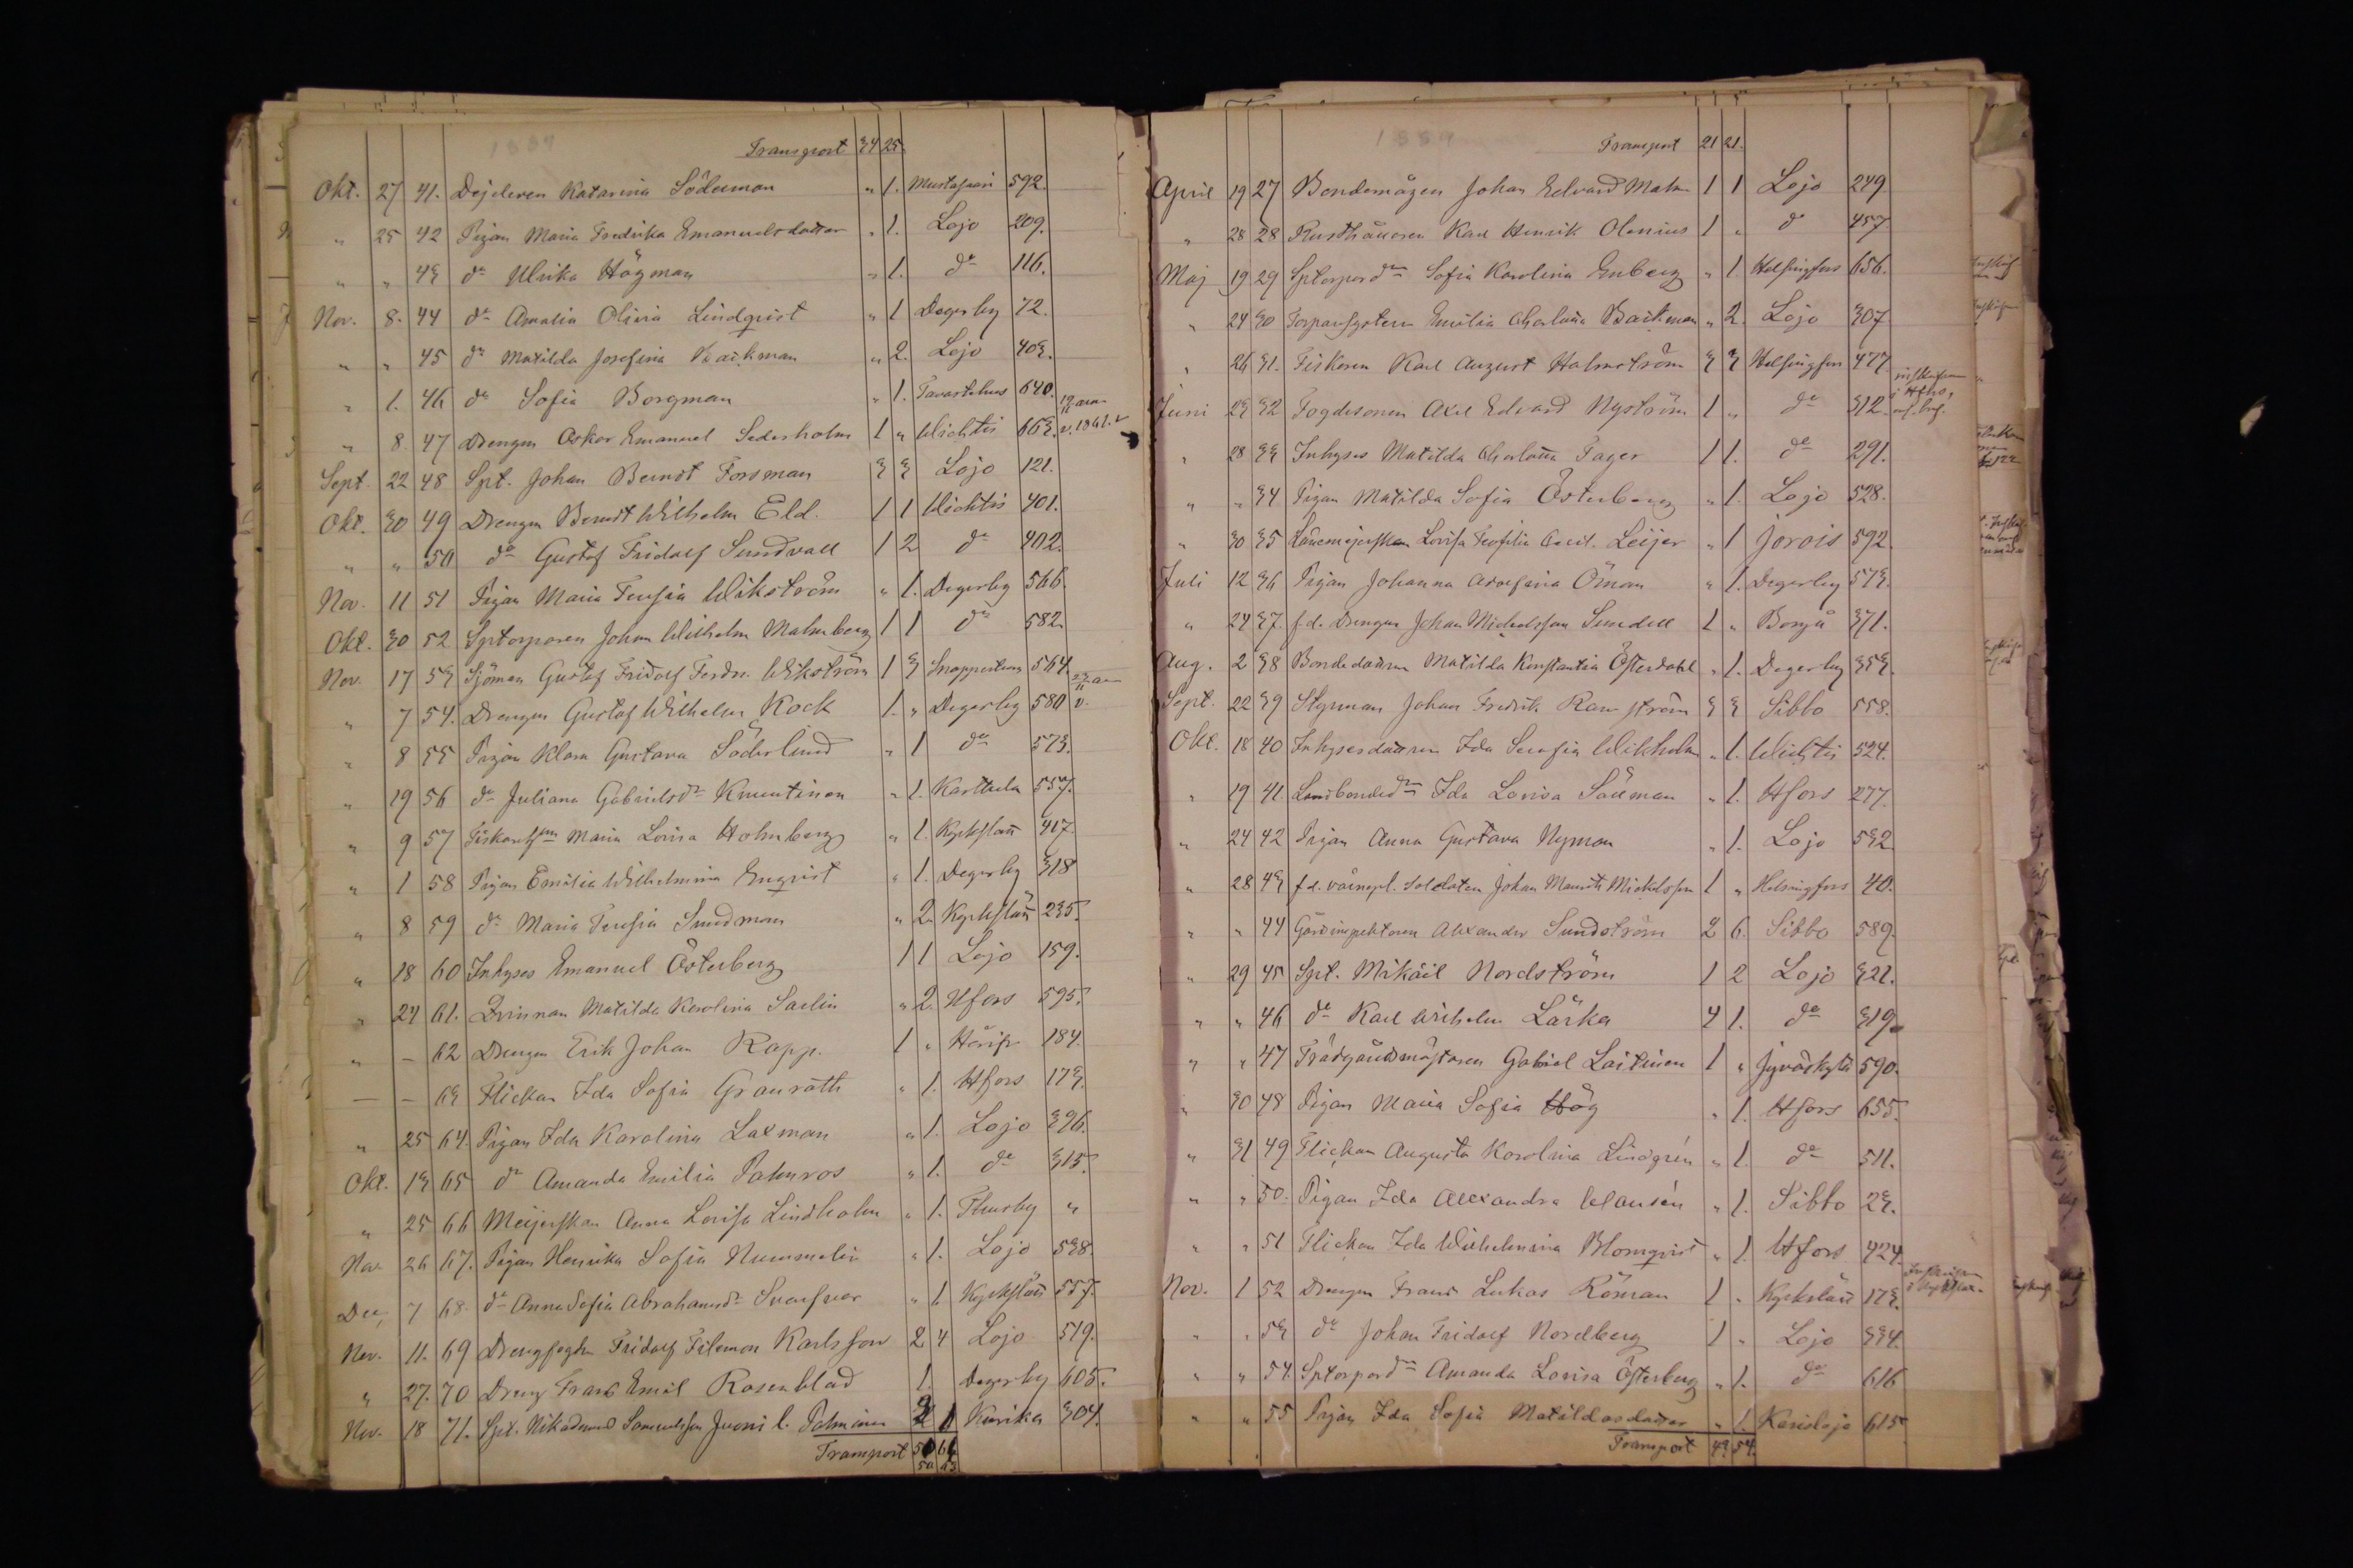 1889
Transport 34 25.
Okt. 27 41. Dejeleven Katarina Söderman " 1. Mustasaari 592.
" 25 42 Pigan Maria Fredrika Emanuelsdotter " 1. Lojo 209.
" " 43 do Ulrika Högman " 1. do 116.
Nov. 8. 44 do Amalia Olivia Lindqvist " 1 Degerby 72.
" " 45 do Matilda Josefina Backman " 2. Lojo 403.
" 1. 46 do Sofia Borgman " 1. Tavastehus 640.
" 8. 47 Drengen Oskar Emanuel Sederholm 1 " Wichtis 663.
Sept. 22 48 Spt. Johan Berndt Forsman 3 3 Lojo 121.
Okt. 30 49 Drengen Berndt Wilhelm Eld. 1 1 Wichtis 401.
" " 50 do Gustaf Fridolf Sundvall 1 2 do 402.
Nov. 11 51 Pigan Maria Fensia Wikström " 1. Degerby 566.
Okt. 30 52 Sptorparen Johan Wilhelm Malmberg 1 1 do 582.
Nov. 17 53 Sjöman Gustaf Fridolf Ferdn. Wikström 1 3 Snappertuna 564.
" 7 54. Drengen Gustaf Wilhelm Kock 1. " Degerby 580
" 8 55 Pigan Klara Gustava Söderlund " 1 do 573.
" 19 56 do Juliana Gabrielsdr Knuutinen " 1. Karttula 557.
" 9 57 Maria Lovisa Holmberg " 1. Kyrkslätt 417.
" 1 58 Pigan Emilia Wilhelmina Enqvist " 1. Degerby 318
" 8 59 do Maria Fensia Sundman " 2. Kyrkslätt 235.
" 18 60 Inhyses Emanuel Österberg 1 1 Lojo 159.
" 24 61. Qvinnan Matilda Karolina Saelin " 2. Hfors 595.
" – 62 Drengen Erik Johan Rapp. 1 " 184.
— – 63 Flickan Ida Sofia Granroth " 1. Hfors 173.
" 25 64. Pigan Ida Karolina Laxman " 1. Lojo 396.
Okt. 13 65 do Amanda Emilia Palmros " 1. do 315.
" 25 66 Meijerskan Anna Lovisa Lindholm " 1. Thusby "
Nov. 26 67. Pigan Henrika Sofia Nummelin " 1. Lojo 538.
Dec, 7 68. do Anna Sofia Abrahamsdr " 1. Kyrkslätt 557.
Nov. 11. 69 Fridolf Filemon Karlsson 2 4 Lojo 519.
" 27. 70 Dreng Frans Emil Rosenblad 1. Degerby 605.
Nov. 18 71. Spt. Nikodemus Samuelsson Juoni l. Palminen 2 1 Kurika 304.
Transport
1889
Transport 21 21.
April 19 27 Bondemågen Johan Edvard Malm 1 1 Lojo 249
" 28 28 Rusthållaren Karl Henrik Olenius 1 " do 457
Maj 19 29 Sptorpardr Sofia Karolina Enberg " 1. Helsingfors 656.
" 24 30 Emilia Charlotta Backman " 2. Lojo 307
" 26 31. Fiskaren Karl August Holmström 3 3 Helsingfors 477.
Juni 23 32 Fogdesonen Axel Edvard Nyström 1 " do 312.
" 28 33 Inhyses Matilda Charlotta Fager 1 1. do 291.
" " 34 Pigan Matilda Sofia Österberg " 1. Lojo 528.
" 30 35 Lovisa Teofilia Leijer " 1 Jorois 592.
Juli 12 36 Pigan Johanna Adolfina Öman " 1. Degerby 573.
" 24 37. f.d. Drengen Johan Michelsson Sundell 1 " Borgå 371.
Aug. 2 38 Bondedottern Matilda Konstantia Österdahl " 1. Degerby 353.
Sept. 22 39 Styrman Johan Fredrik Ramström 3 3 Sibbo 558.
Okt. 18 40 Inhysesdottern Ida Serafia Wikholm " 1. Wichtis 524.
" 19 41. Landbondedr Ida Lovisa Sällman " 1. Hfors 277.
" 24 42 Pigan Anna Gustava Nyman " 1. Lojo 532
" 28 43 f.d. värnepl. Soldaten Johan Mauritz Mickelsson 1 " Helsingfors 40.
" " 44 Gårdsinspektoren Alexander Sundström 2 6. Sibbo 589.
" 29 45 Spt. Mikael Nordström 1 2 Lojo 321.
" " 46 do Karl Wilhelm Lärka 4 1. do 319.
" " 47 Trädgårdsmästaren Gabriel Laitinen 1 " Jyväskylä 590.
" 30 48 Pigan Maria Sofia Hög " 1. Hfors 655.
" 31 49 Flickan Augusta Karolina Lindgrén " 1. do 511.
" " 50. Pigan Ida Alexandra Clausén " 1. Sibbo 23.
" " 51 Flickan Ida Wilhelmina Blomqvist " 1. Hfors 424.
Nov. 1 52 Drengen Frans Lukas Röman 1 " Kyrkslätt 173.
" " 53 do Johan Fridolf Nordberg 1 " Lojo 334.
" " 54. Sptorpardr Amanda Lovisa Österberg " 1. do 616
" " 55 Pigan Ida Sofia Matildasdotter " 1. Karislojo 615
Transport 43. 54.